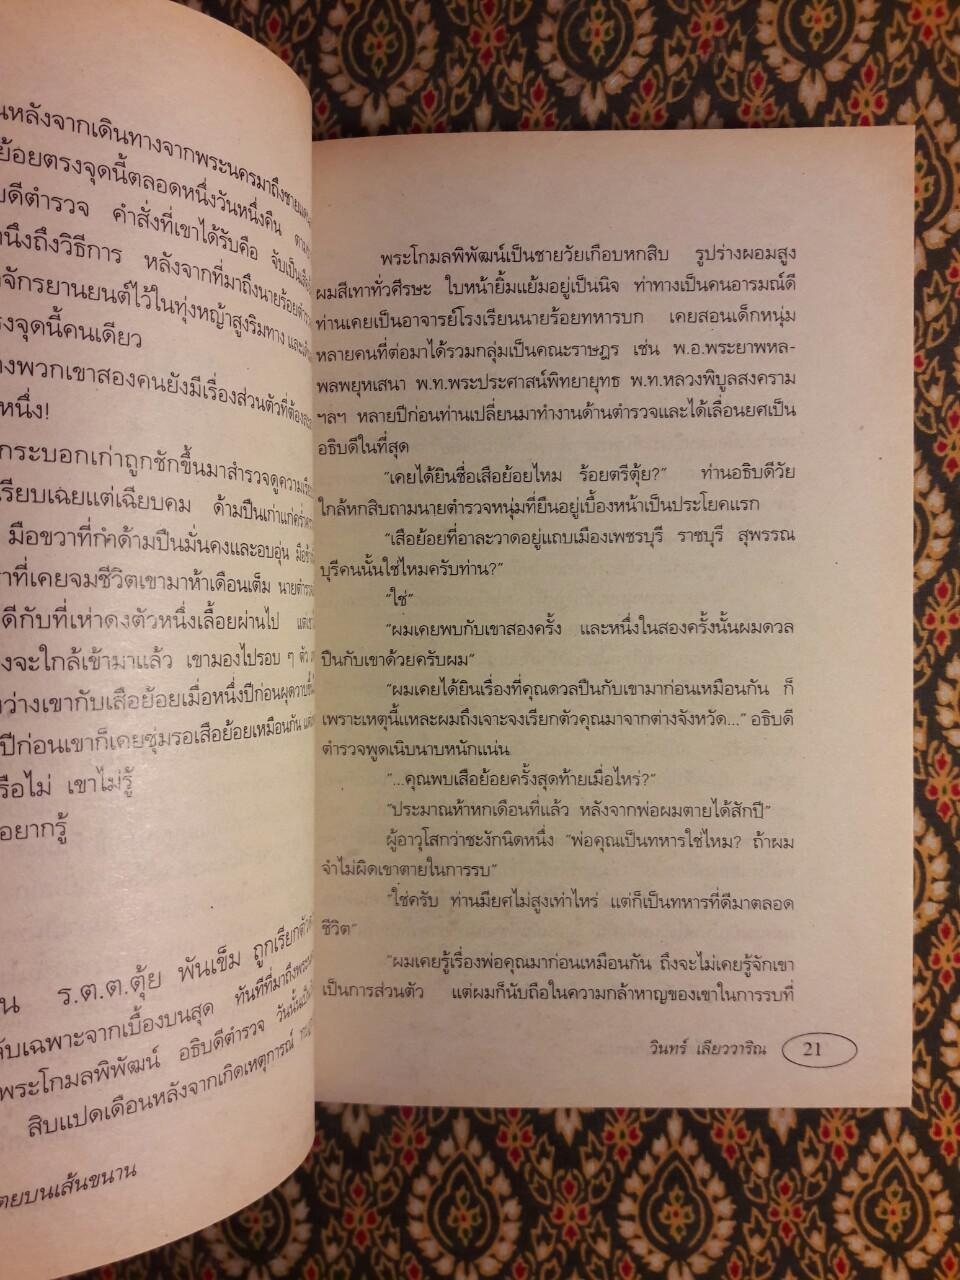 นหลังจากเดินทางจากพระนครมาถึงชายแดน
ย้อยตรงจุดนี้ตลอดหนึ่งวันหนึ่งคืน
บดีตำรวจ คำสั่งที่เขาได้รับคือ จับเป็นเสือ
นึงถึงวิธีการ หลังจากที่มาถึงนายร้อยตำรวจ
จักรยานยนต์ไว้ในทุ่งหญ้าสูงริมทาง และ
รงจุดนี้คนเดียว
างพวกเขาสองคนยังมีเรื่องส่วนตัวที่ต้องสะ
หนึ่ง!
กระบอกเก่าถูกชักขึ้นมาสำรวจดูความเรีย
เรียบเฉยแต่เฉียบคม ด้ามปืนเก่าแก่คร่ำคร่า
มือขวาที่กำด้ามปืนมั่นคงและอบอุ่น มือซ้าย
าที่เคยจมชีวิตเขามาห้าเดือนเต็ม นายตำรวจ
ดีกับที่เห่าดงตัวหนึ่งเลื้อยผ่านไป แต่เขา
งจะใกล้เข้ามาแล้ว เขามองไปรอบ ๆ ตัว
หว่างเขากับเสือย้อยเมื่อหนึ่งปีก่อนผุดวาบขึ้น
ปีก่อนเขาก็เคยซุ่มรอเสือย้อยเหมือนกัน แต่
รือไม่ เขาไม่รู้
อยากรู้
น ร.ต.ต.ตุ้ย พันเข็ม ถูกเรียกตัว
ลับเฉพาะจากเบื้องบนสุด ทันทีที่มาถึงพระ
พระโกมลพิพัฒน์ อธิบดีตำรวจ วันนั้นเป็น
สิบแปดเดือนหลังจากเกิดเหตุการณ์
ตยบนเส้นขนาน
พระโกมลพิพัฒน์เป็นชายวัยเกือบหกสิบ รูปร่างผอมสูง
ผมสีเทาทั่วศีรษะ ใบหน้ายิ้มแย้มอยู่เป็นนิจ ท่าทางเป็นคนอารมณ์ดี
ท่านเคยเป็นอาจารย์โรงเรียนนายร้อยทหารบก เคยสอนเด็กหนุ่ม
หลายคนที่ต่อมาได้รวมกลุ่มเป็นคณะราษฎร เช่น พ.อ.พระยาพหล-
พลพยุหเสนา พ.ท.พระประศาสน์พิทยายุทธ พ.ท.หลวงพิบูลสงคราม
ฯลฯ หลายปีก่อนท่านเปลี่ยนมาทำงานด้านตำรวจและได้เลื่อนยศเป็น
อธิบดีในที่สุด
"เคยได้ยินชื่อเสือย้อยไหม ร้อยตรีตุ้ย?" ท่านอธิบดีวัย
ใกล้หกสิบถามนายตำรวจหนุ่มที่ยืนอยู่เบื้องหน้าเป็นประโยคแรก
"เสือย้อยที่อาละวาดอยู่แถบเมืองเพชรบุรี ราชบุรี สุพรรณ
บุรีคนนั้นใช่ไหมครับท่าน?"
"ใช่"
"ผมเคยพบกับเขาสองครั้ง และหนึ่งในสองครั้งนั้นผมดวล
ปืนกับเขาด้วยครับผม"
"ผมเคยได้ยินเรื่องที่คุณดวลปืนกับเขามาก่อนเหมือนกัน ก็
เพราะเหตุนี้แหละผมถึงเจาะจงเรียกตัวคุณมาจากต่างจังหวัด..." อธิบดี
ตำรวจพูดเนิบนาบหนักแน่น
"...คุณพบเสือย้อยครั้งสุดท้ายเมื่อไหร่?"
"ประมาณห้าหกเดือนที่แล้ว หลังจากพ่อผมตายได้สักปี"
ผู้อาวุโสกว่าชะงักนิดหนึ่ง "พ่อคุณเป็นทหารใช่ไหม? ถ้าผม
จำไม่ผิดเขาตายในการรบ"
"ใช่ครับ ท่านมียศไม่สูงเท่าไหร่ แต่ก็เป็นทหารที่ดีมาตลอด
ชีวิต"
"ผมเคยรู้เรื่องพ่อคุณมาก่อนเหมือนกัน ถึงจะไม่เคยรู้จักเขา
เป็นการส่วนตัว แต่ผมก็นับถือในความกล้าหาญของเขาในการรบที่
วินทร์ เลียววาริณ 21